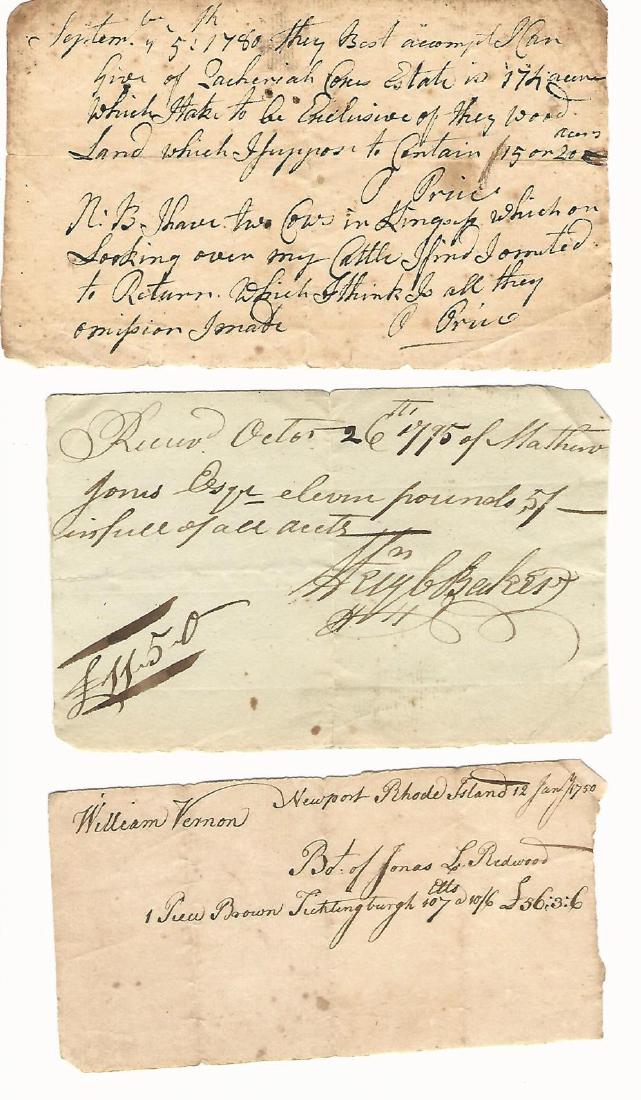 Septem.br ye 5th: 1780 they Best accompt I Can
Give of Zacheriah Cones Estate is 174 acres
Which I take to be Exclusive of they wood
Land which I suppose to Contain 15 or 20 acres
Price
N:B I have two Cows in which on
Looking over my Cattle I find I omited
to Return. Which I think Is all they
omission I made Price
Receiv'd Octor 26th 1775 of Mathew
Jones Esqr eleven pounds 5/
in full of all accts
Baker
£11-5-0
Newport Rhode Island 12 Jany 1750
William Vernon
Bot. of Jonas L. Redwood
1 Piece Brown Ticklingburgh 107 Ells a 10/6 £56:3:6